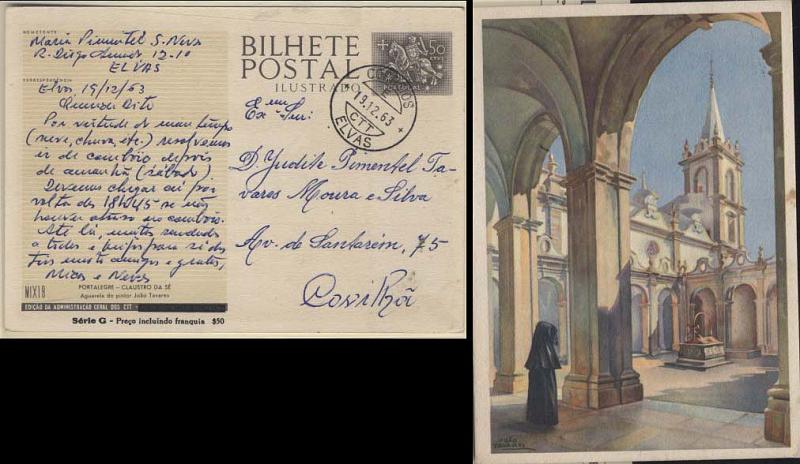 REMETENTE
Maria Pimentel S. Neves
R. Diogo 12-1º
ELVAS
CORRESPONDÊNCIA
Elvas 19/12/63
Por virtude do mau tempo
(neve, chuva, etc.) resolvemos
ir de comboio depois
de amanhã (sábado)
Devemos chegar aí por
volta das 18h45 se não
houver atraso no comboio.
Até lá, muitas saudades
a todos e para si dos
seus amigos e gratos,
e Neves
NIXIB
PORTALEGRE - CLAUSTRO DA SÉ
Aguarela do pintor João Tavares
EDIÇÃO DA ADMINISTRAÇÃO GERAL DOS CTT
Série G - Preço incluindo franquia $50
BILHETE
POSTAL
ILUSTRADO
$50
PORTUGAL
CORREIOS
19.12.63
CTT
ELVAS
D. Yudite Pimentel Ta-
vares Moura e Silva
Av. de Santarém, 75
Covilhã
JOÃO
TAVARES